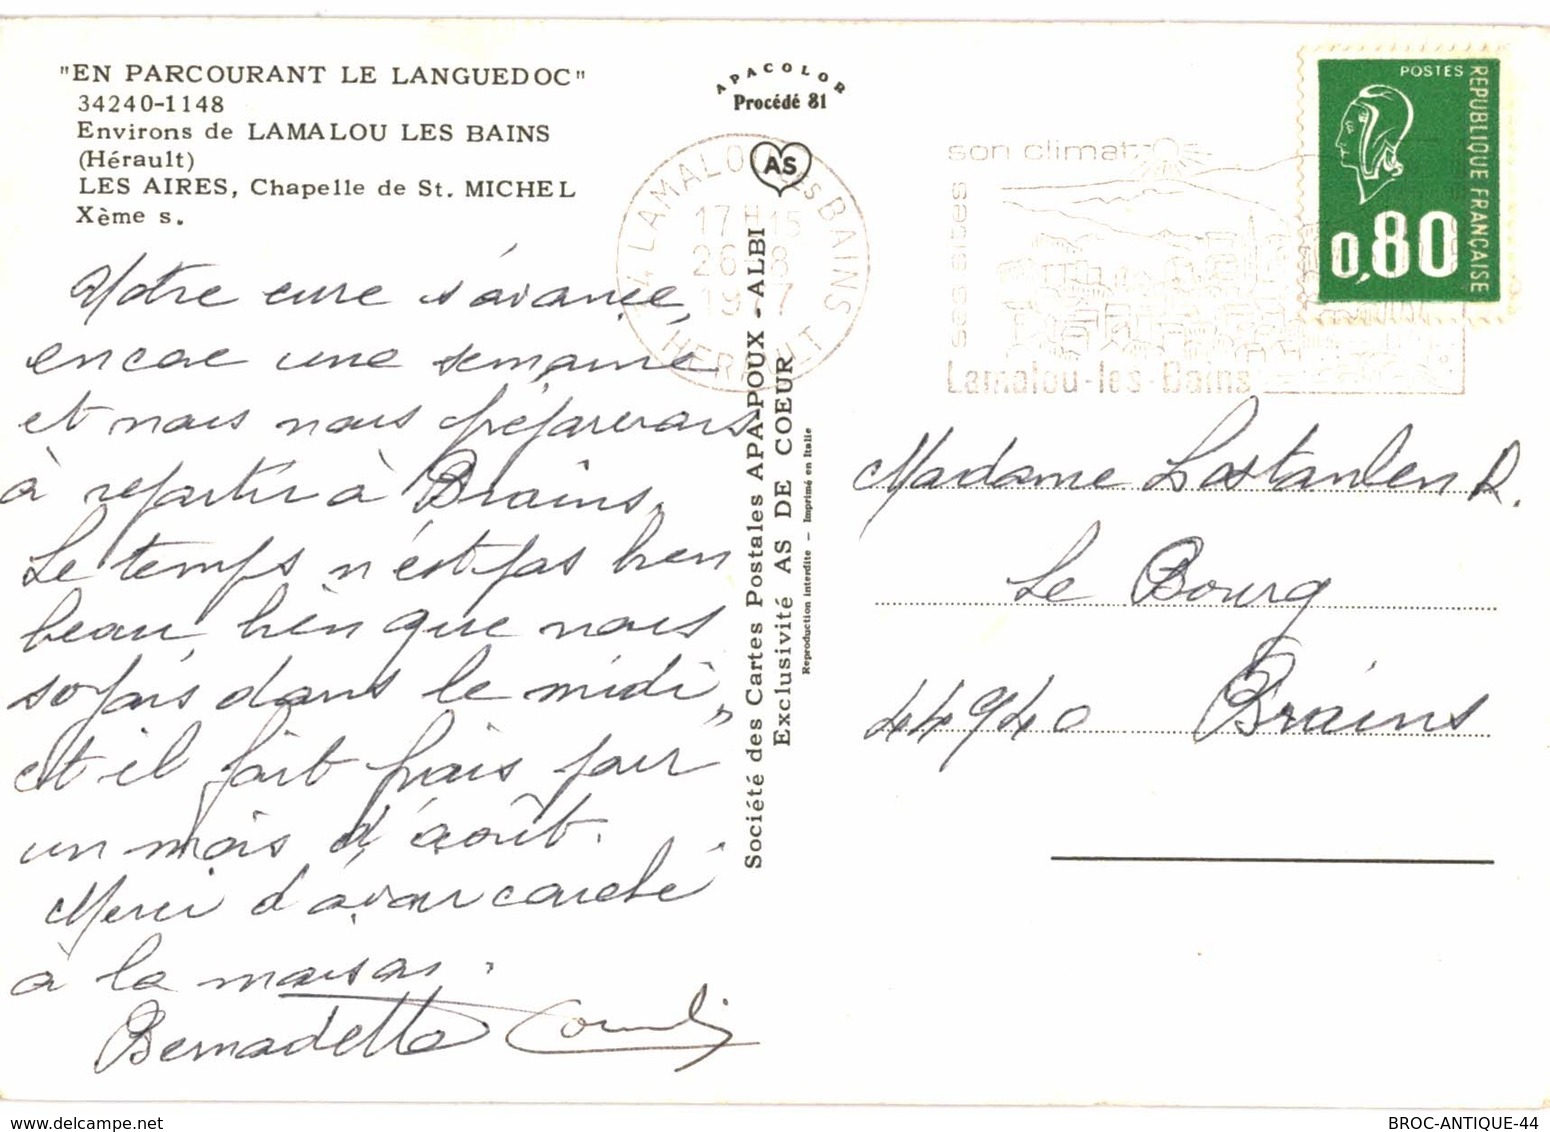 "EN PARCOURANT LE LANGUEDOC"
34240-1148
Environs de LAMALOU LES BAINS
(Hérault)
LES AIRES, Chapelle de St. MICHEL
Xème s.
Notre cure s'avance,
encore une semaine
et nous nous préparerons
à repartir à Brains.
Le temps n'est pas bien
beau, bien que nous
soyons dans le midi,
et il fait frais pour
un mois d'août.
Merci d'avoir
à la maison.
Bernadette
APACOLOR
Procédé 81
AS
LAMALOU les BAINS
17 H 15
26-8
1977
HERAULT
Société des Cartes Postales APA-POUX - ALBI
Exclusivité AS DE COEUR
Reproduction interdite - Imprimé en Italie
son climat
ses sites
Lamalou-les-Bains
POSTES
REPUBLIQUE FRANÇAISE
0,80
Madame Lostanlen R.
Le Bourg
44940 Brains
BROC-ANTIQUE-44